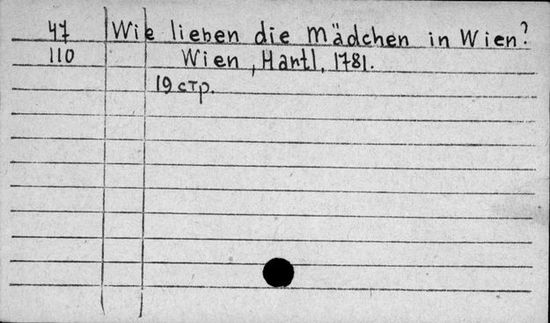 47 Wie lieben die Mädchen in Wien?
110 Wien, Hartl, 1781.
19 стр.